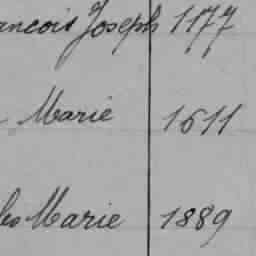 ancois Joseph 1177
Marie 1611
les Marie 1889